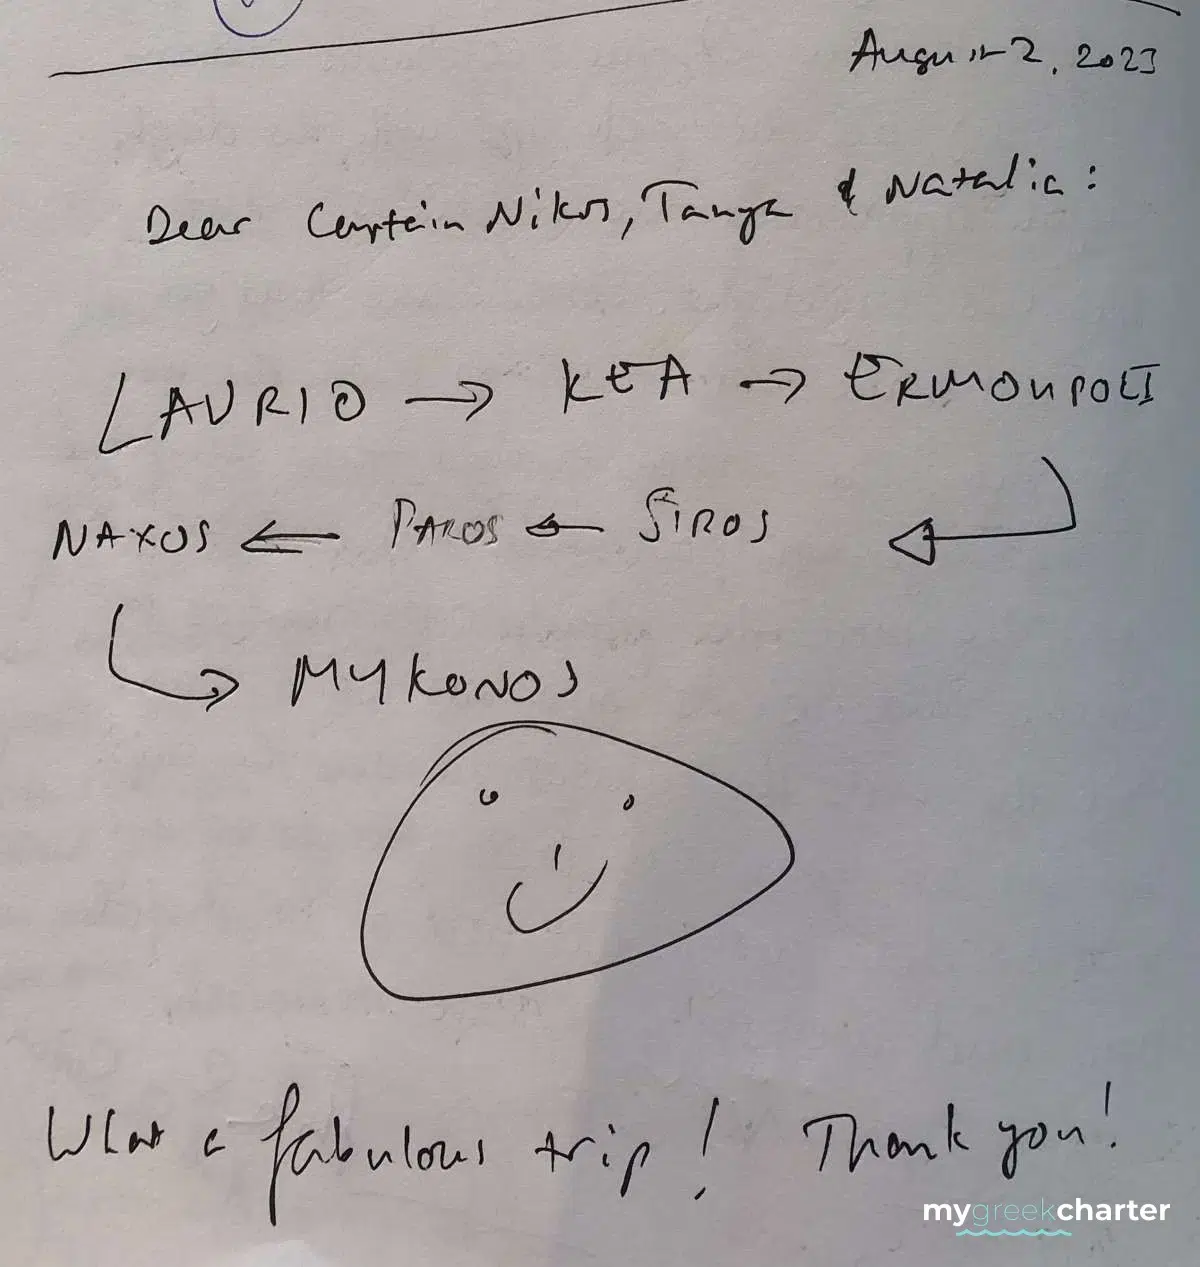 August 2, 2023
Dear Captain Nikos, Tanya & Natalia:
LAVRIO → KEA → ERMOUPOLI
NAXOS ← PAROS ← SIROS
MYKONOS
What a fabulous trip! Thank you!
mygreekcharter